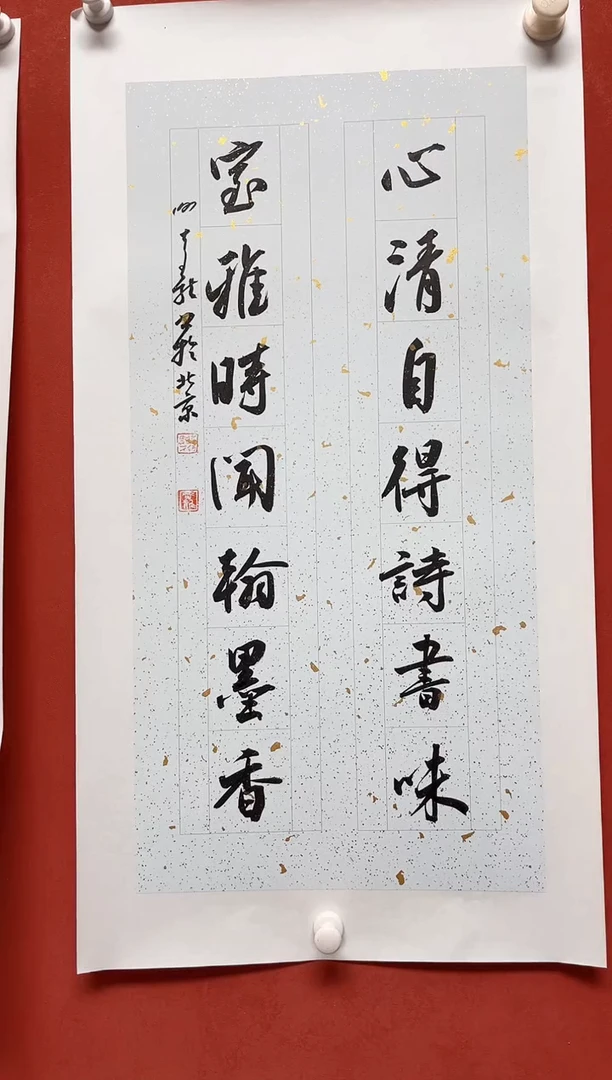 心清自得詩書味
室雅時聞翰墨香
书於北京